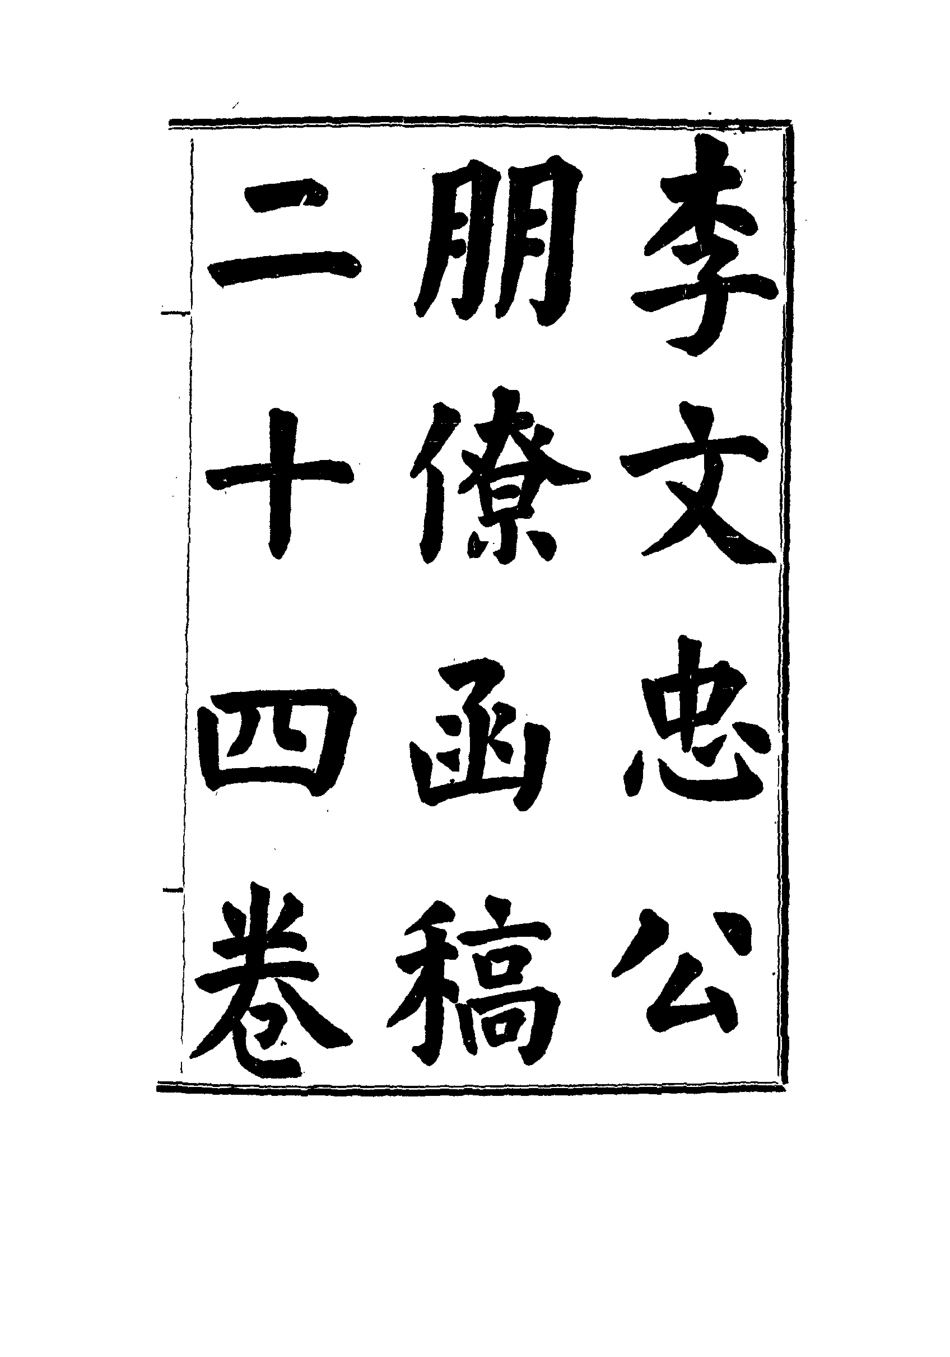 李文忠公
朋僚函稿
二十四卷